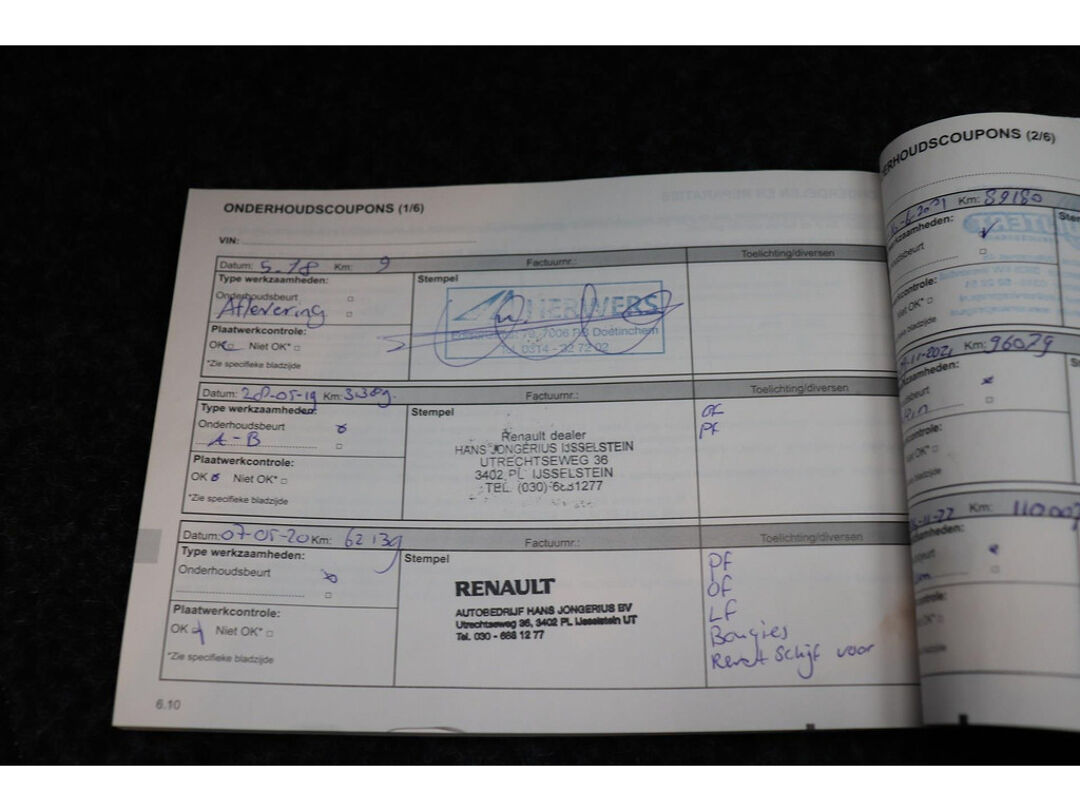 ONDERHOUDSCOUPONS (1/6)
VIN:
Datum: 5-18 Km: 9 Factuurnr.: Toelichting/diversen
Type werkzaamheden:
Stempel
Onderhoudsbeurt
Aflevering
HERWERS
7006 RB Doetinchem
Tel. 0314 - 32 72 02
Plaatwerkcontrole:
OK Niet OK*
*Zie specifieke bladzijde
Datum: 28-05-19 Km: 33.389. Factuurnr.: Toelichting/diversen
Type werkzaamheden:
Stempel
Onderhoudsbeurt
A-B
OF
PF
Renault dealer
HANS JONGERIUS IJSSELSTEIN
UTRECHTSEWEG 36
3402 PL IJSSELSTEIN
TEL. (030)-6881277
Plaatwerkcontrole:
OK Niet OK*
*Zie specifieke bladzijde
Datum: 07-05-20 Km: 62139 Factuurnr.: Toelichting/diversen
Type werkzaamheden:
Stempel
Onderhoudsbeurt
RENAULT
AUTOBEDRIJF HANS JONGERIUS BV
Utrechtseweg 36, 3402 PL IJsselstein UT
Tel. 030 - 688 12 77
PF
OF
LF
Bougies
Schijf voor
Plaatwerkcontrole:
OK Niet OK*
*Zie specifieke bladzijde
6.10
ERHOUDSCOUPONS (2/6)
-6-2021 Km: 89180
kzaamheden:
oudsbeurt
kcontrole:
Niet OK*
bladzijde
-11-2021 Km: 96079
zaamheden:
sbeurt
controle:
OK*
bladzijde
-11-22 Km: 110.007
amheden:
beurt
ontrole:
OK*
bladzijde